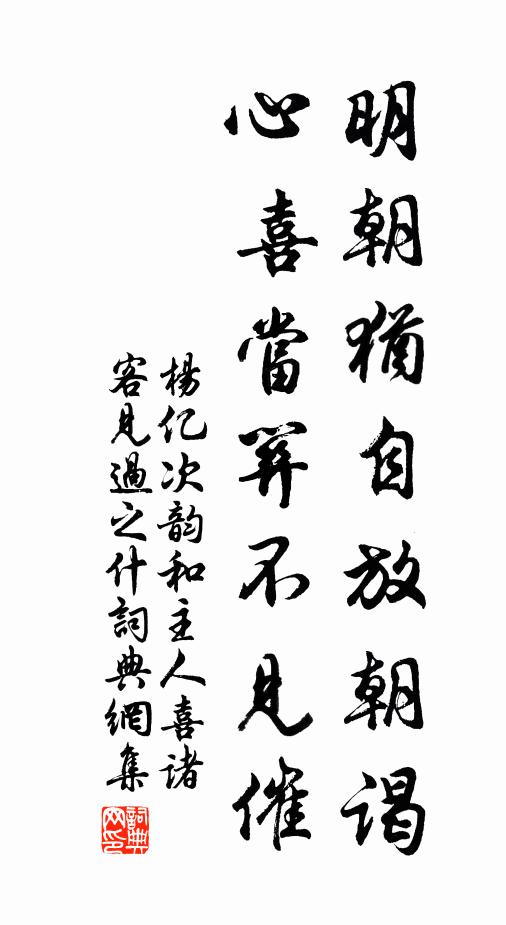 明朝猶自放朝謁
心喜當筭不見催
楊亿次韵和主人喜諸
客見過之什詞典網集
詞典
网印